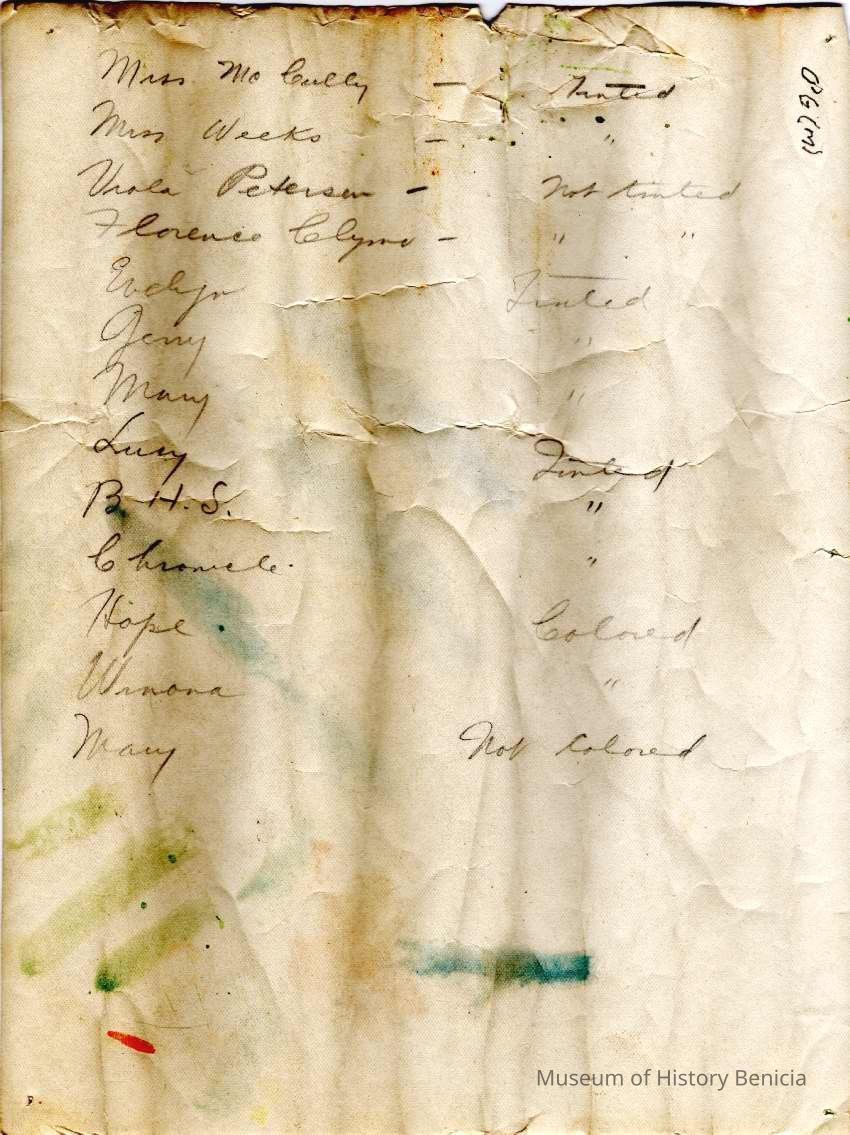 Miss McCully — Tinted
Miss Weeks — "
Viola Petersen — Not tinted
Florence Clymo — " "
Evelyn Tinted
Gerry "
Mary "
Lucy Tinted
B.H.S. "
Chronicle. "
Hope Colored
Winona "
Mary Not Colored
Museum of History Benicia